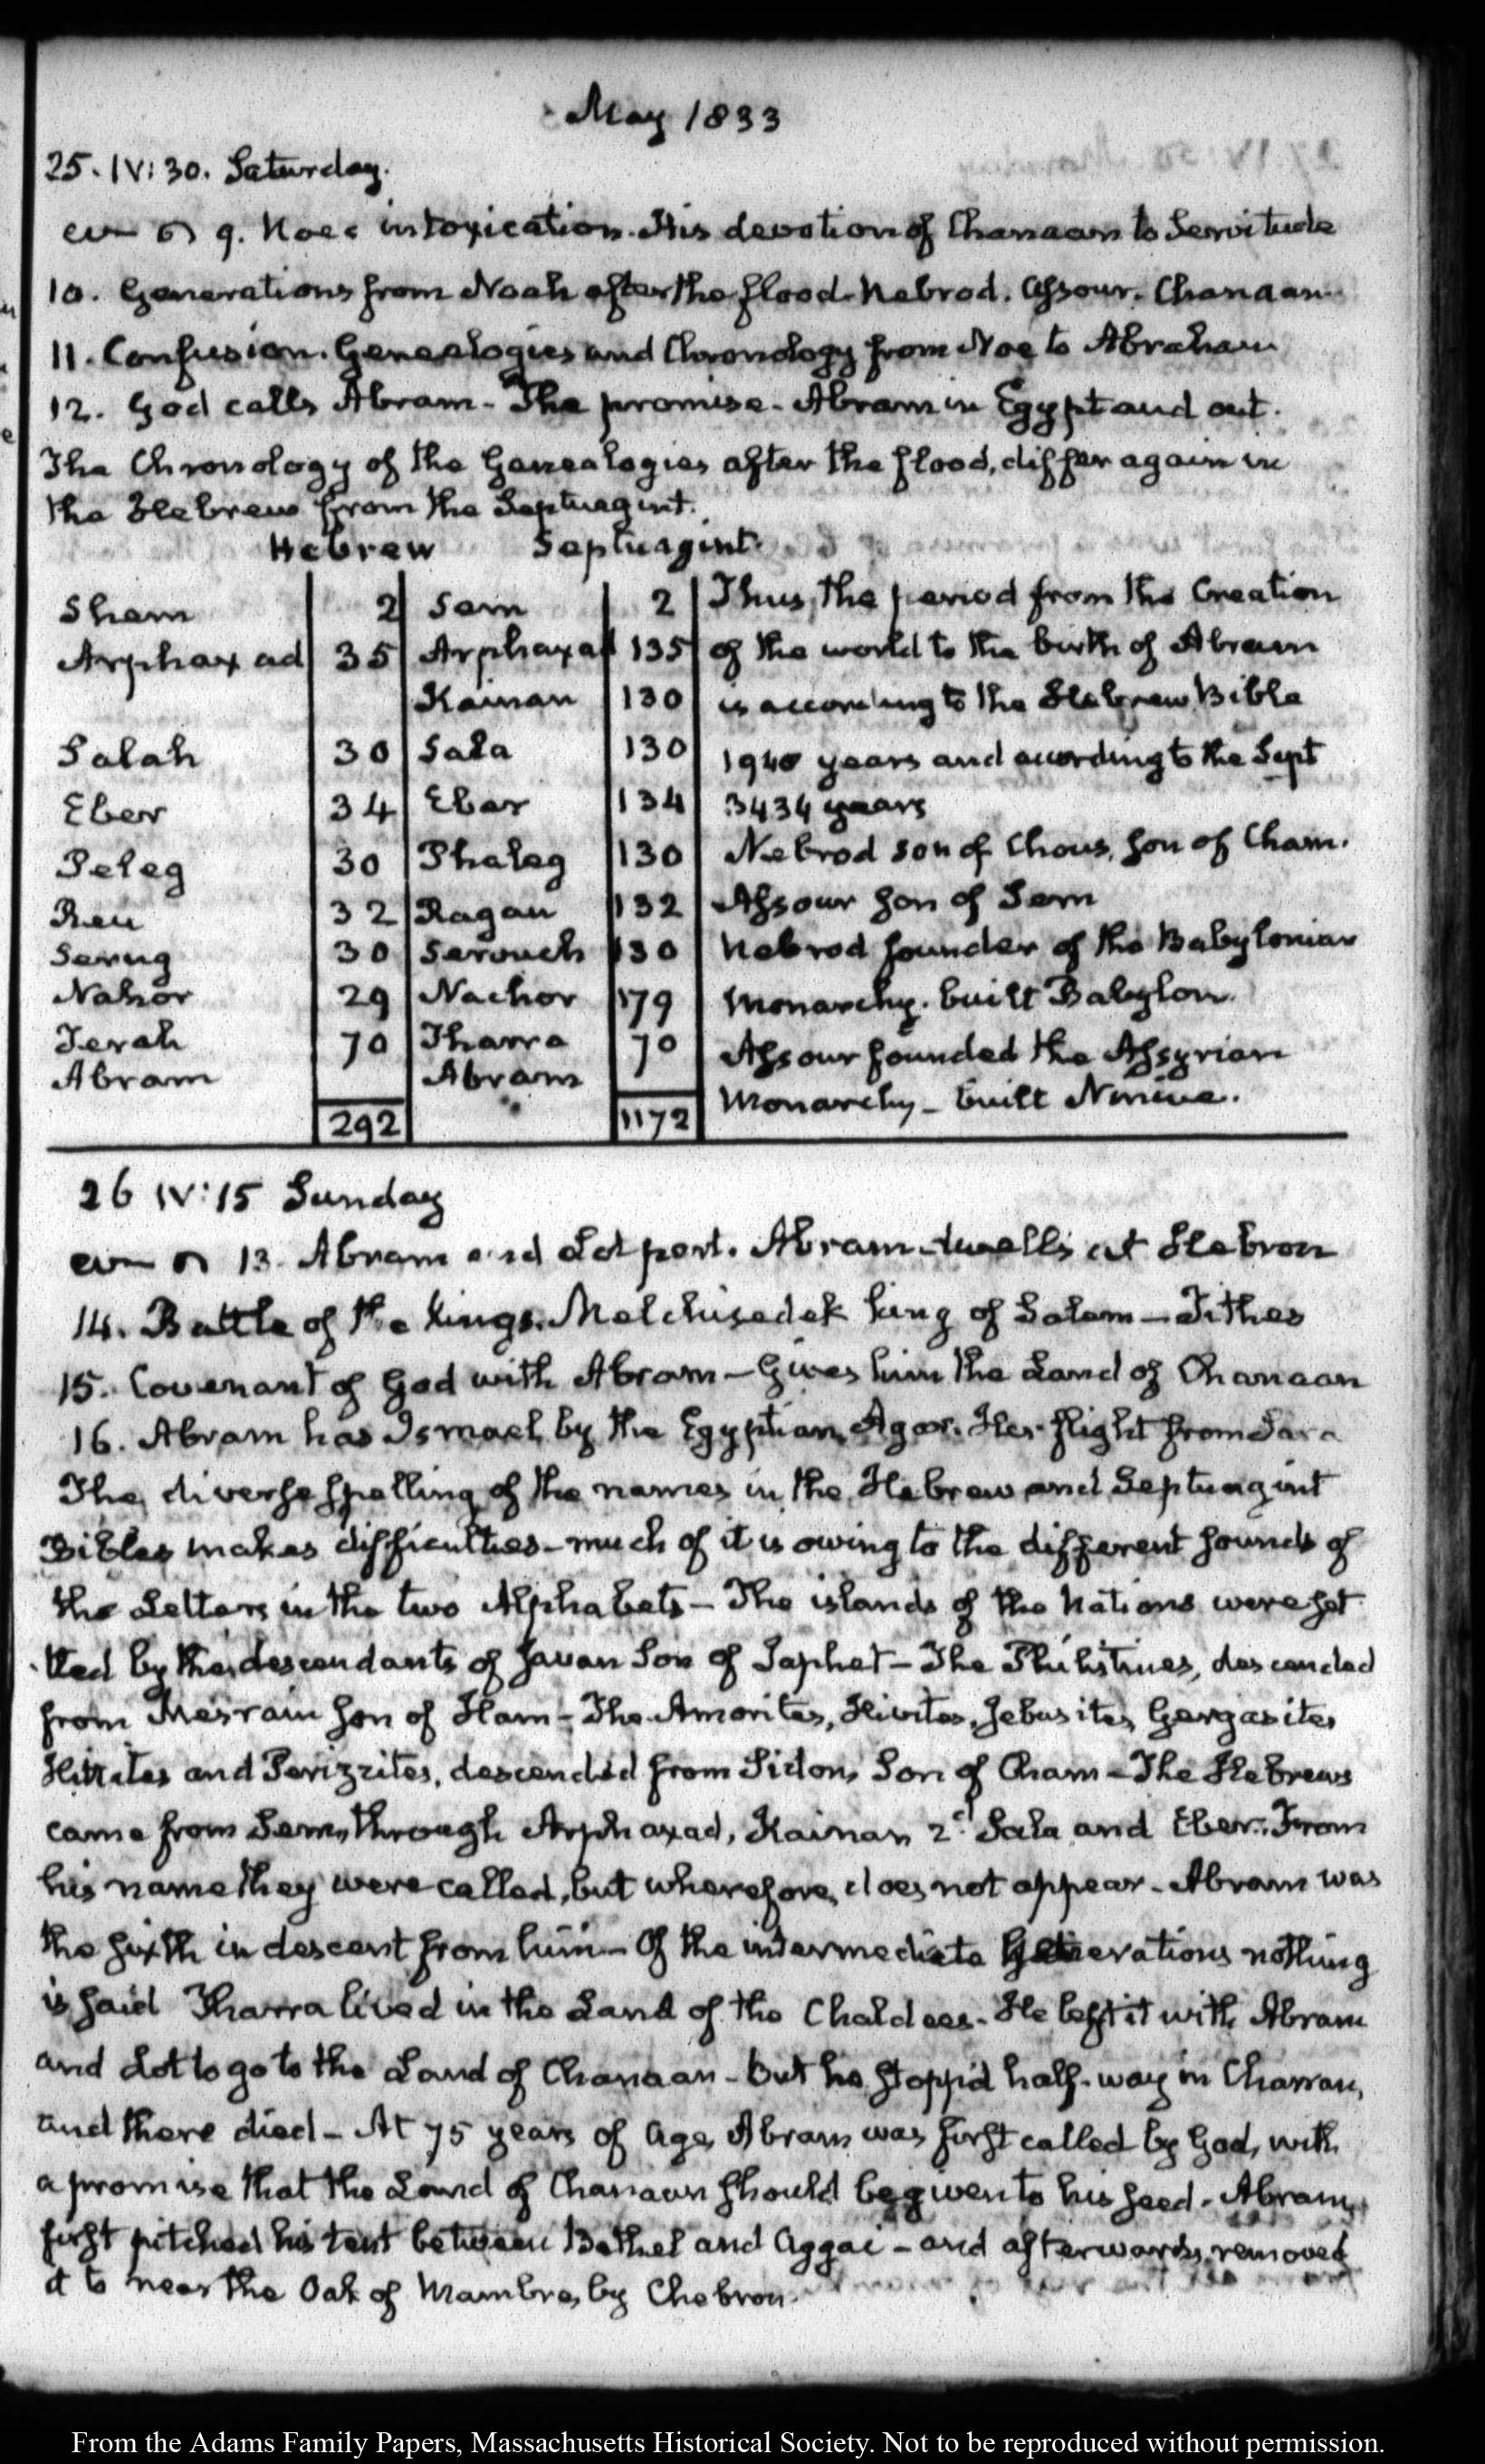 May 1833
25. IV: 30. Saturday.
9. Noe's intoxication. His devotion of Chanaan to Servitude
10. Generations from Noah after the flood. Nebrod. Assour. Chanaan
11. Confusion. Genealogies and Chronology from Noe to Abraham
12. God calls Abram - The promise - Abram in Egypt and out.
The Chronology of the Genealogies after the flood, differ again in
the Hebrew from the Septuagint.
Hebrew Septuagint.
Shem 2 Sem 2 Thus the period from the Creation
Arphaxad 35 Arphaxad 135 of the world to the birth of Abram
Kainan 130 is according to the Hebrew Bible
Salah 30 Sala 130 1940 years and according to the Sept
Eber 34 Eber 134 3434 years
Peleg 30 Phaleg 130 Nebrod son of Chous, son of Cham.
Reu 32 Ragau 132 Assour son of Sem
Serug 30 Serouch 130 Nebrod founder of the Babylonian
Nahor 29 Nachor 179 Monarchy. built Babylon.
Terah 70 Tharra 70 Assour founded the Assyrian
Abram Abram Monarchy - built Ninive.
292 1172
26 IV: 15 Sunday
13. Abram and Lot part. Abram dwells at Hebron
14. Battle of the Kings. Melchisedek king of Salem - Tithes
15. Covenant of God with Abram - Gives him the Land of Chanaan
16. Abram has Ismael by the Egyptian Agar. Her flight from Sara
The diverse spelling of the names in the Hebrew and Septuagint
Bibles makes difficulties - much of it is owing to the different sounds of
the Letters in the two Alphabets - The islands of the Nations were set
tled by the descendants of Javan Son of Japhet - The Philistines, descended
from Mesrain son of Ham - The Amorites, Hivites, Jebusites, Gergasites
Hittites and Perizzites, descended from Sidon, Son of Cham - The Hebrews
came from Sem, through Arphaxad, Kainan 2d. Sala and Eber. From
his name they were called, but wherefore, does not appear - Abram was
the sixth in descent from him - Of the intermediate Generations nothing
is said Tharra lived in the Land of the Chaldees - He left it with Abram
and Lot to go to the Land of Chanaan - but he stopp'd half-way in Charran,
and there died - At 75 years of age, Abram was first called by God, with
a promise that the Land of Chanaan should be given to his seed - Abram,
first pitched his tent between Bethel and Aggai - and afterwards removed
it to near the Oak of Mambre, by Chebron.
From the Adams Family Papers, Massachusetts Historical Society. Not to be reproduced without permission.